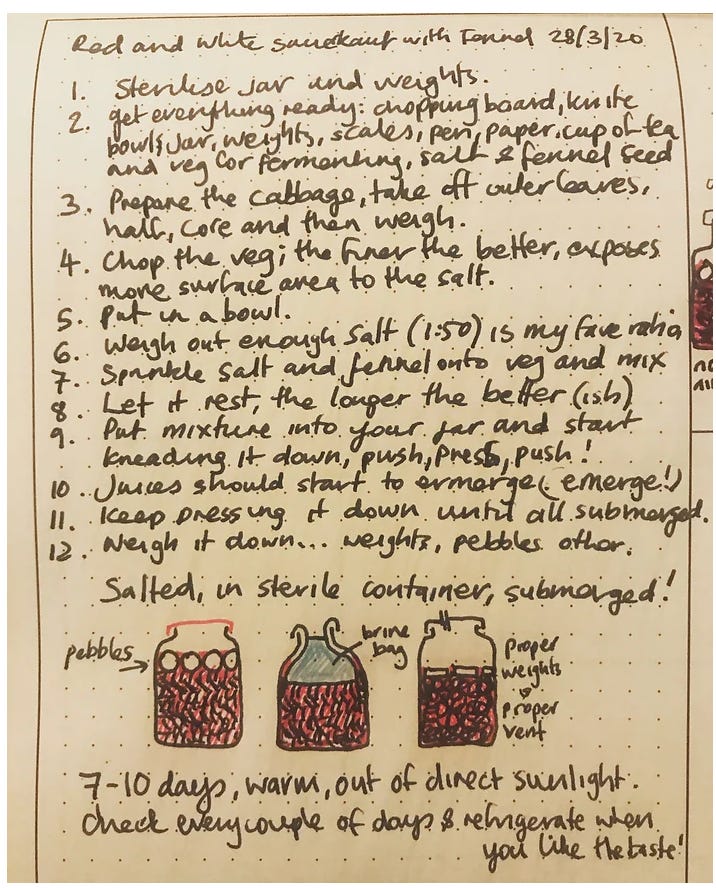 Red and white sauerkraut with Fennel 28/3/20
1. Sterilise jar and weights.
2. get everything ready: chopping board, knife
bowls, jar, weights, scales, pen, paper, cup of tea
and veg for fermenting, salt & fennel seed
3. Prepare the cabbage, take off outer leaves,
half, core and then weigh.
4. Chop the veg; the finer the better, exposes
more surface area to the salt.
5. Put in a bowl.
6. Weigh out enough salt (1:50) is my fave ratio
7. Sprinkle salt and fennel onto veg and mix
8. Let it rest, the longer the better (ish)
9. Put mixture into your jar and start
kneading it down, push, press, push!
10. Juices should start to ermerge (emerge!)
11. Keep pressing it down until all submerged.
12. Weigh it down... weights, pebbles other.
Salted, in sterile container, submerged!
pebbles
brine
bag
proper
weights
&
proper
vent
7-10 days, warm, out of direct sunlight.
Check every couple of days & refrigerate when
you like the taste!